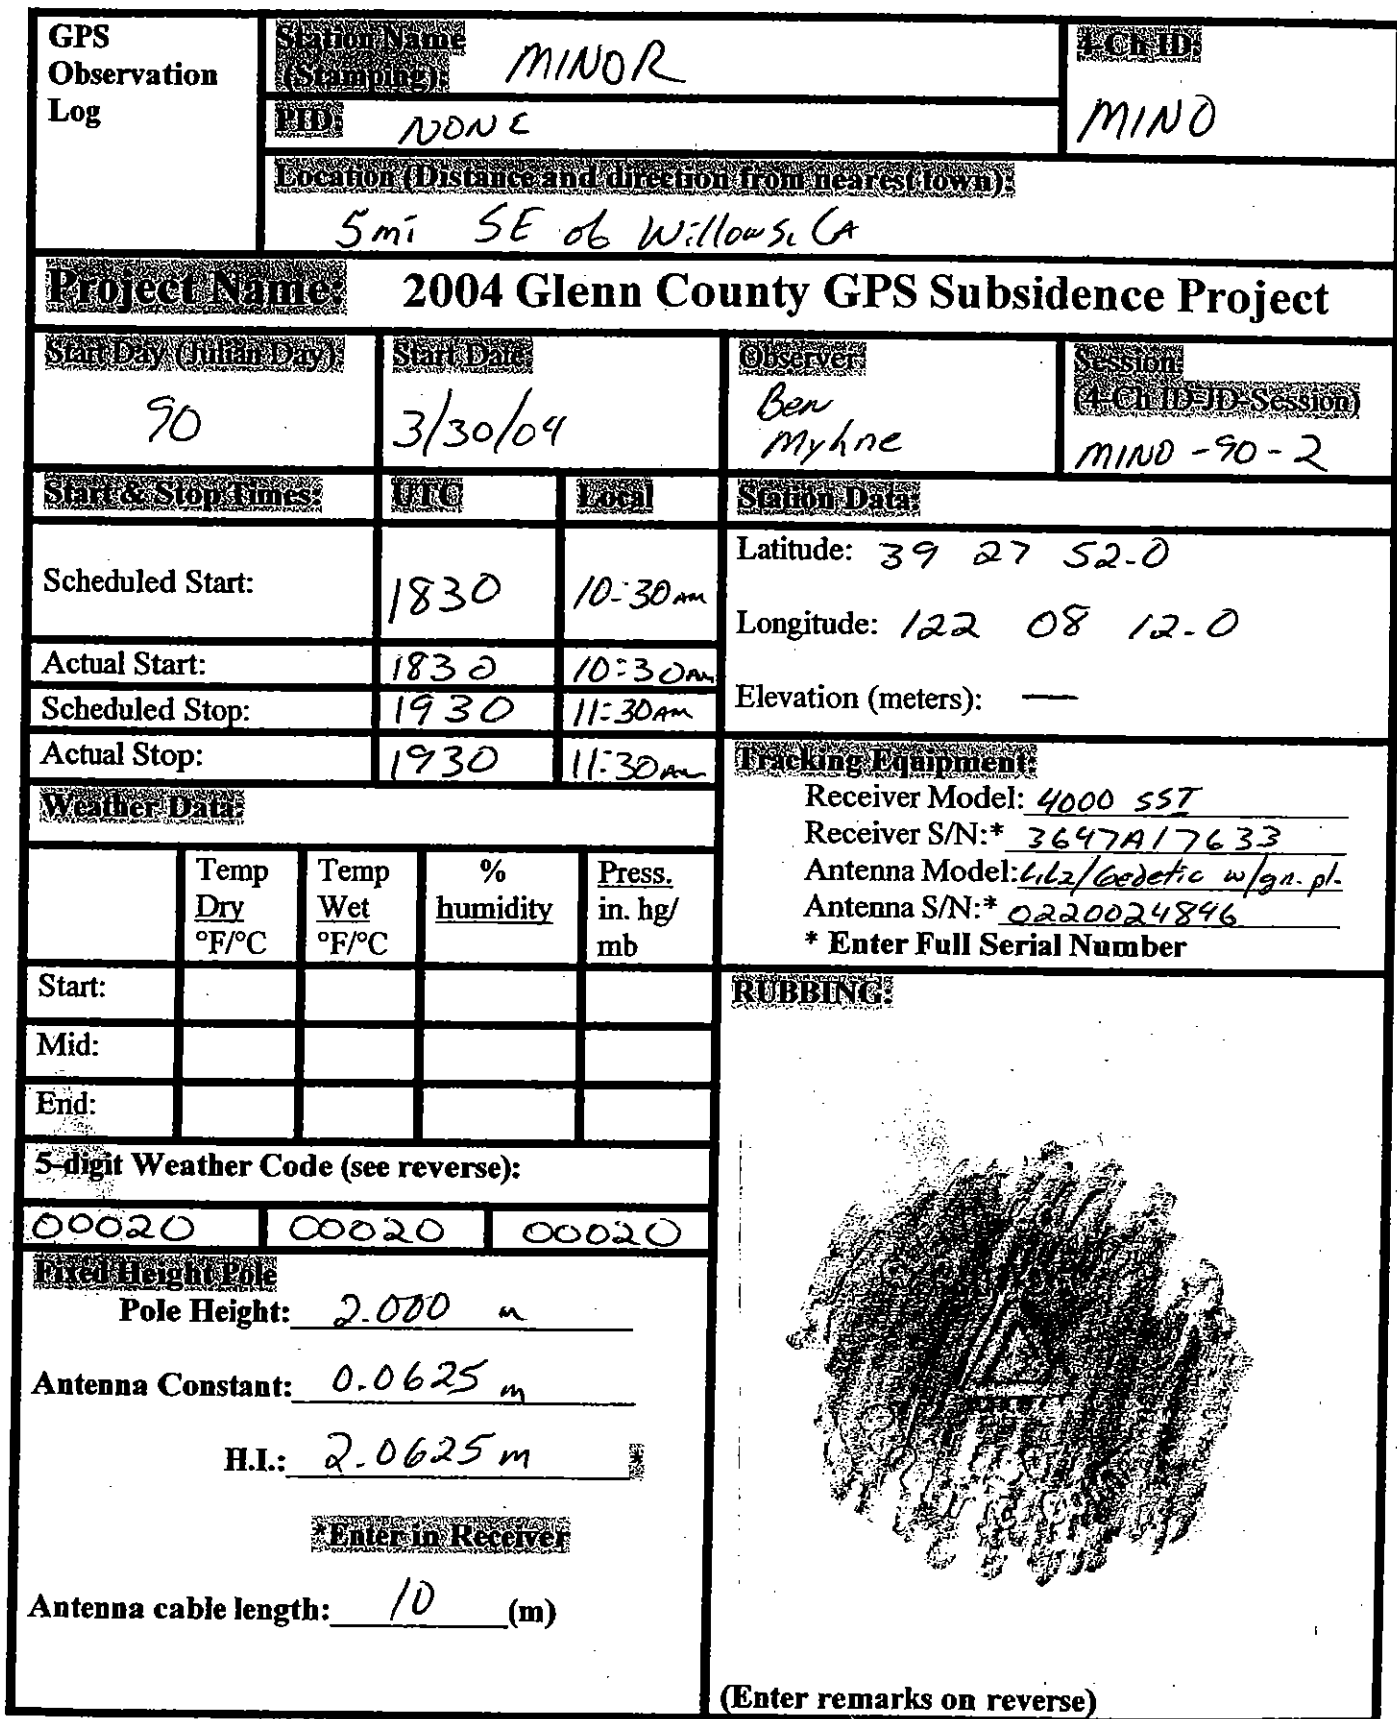 GPS
Observation
Log
Station Name
(Stamping):
MINOR
4-Ch ID:
MINO
PID: NONE
Location (Distance and direction from nearest town):
5mi SE of Willows, CA
Project Name: 2004 Glenn County GPS Subsidence Project
Start Day (Julian Day)
90
Start Date:
3/30/04
Observer:
Ben
Myhre
Session:
(4-Ch ID-JD-Session)
MINO-90-2
Start & Stop Times: UTC Local
Scheduled Start: 1830 10:30 AM
Actual Start: 1830 10:30 AM
Scheduled Stop: 1930 11:30 AM
Actual Stop: 1930 11:30 AM
Station Data:
Latitude: 39 27 52.0
Longitude: 122 08 12.0
Elevation (meters): —
Tracking Equipment:
Receiver Model: 4000 SST
Receiver S/N:* 3647A17633
Antenna Model: L1L2/Gedetic w/gn. pl.
Antenna S/N:* 0220024846
* Enter Full Serial Number
Weather Data:
Temp
Dry
°F/°C
Temp
Wet
°F/°C
%
humidity
Press.
in. hg/
mb
Start:
Mid:
End:
5-digit Weather Code (see reverse):
00020 00020 00020
Fixed Height Pole
Pole Height: 2.000 m
Antenna Constant: 0.0625 m
H.I.: 2.0625 m *
*Enter in Receiver
Antenna cable length: 10 (m)
RUBBING:
(Enter remarks on reverse)